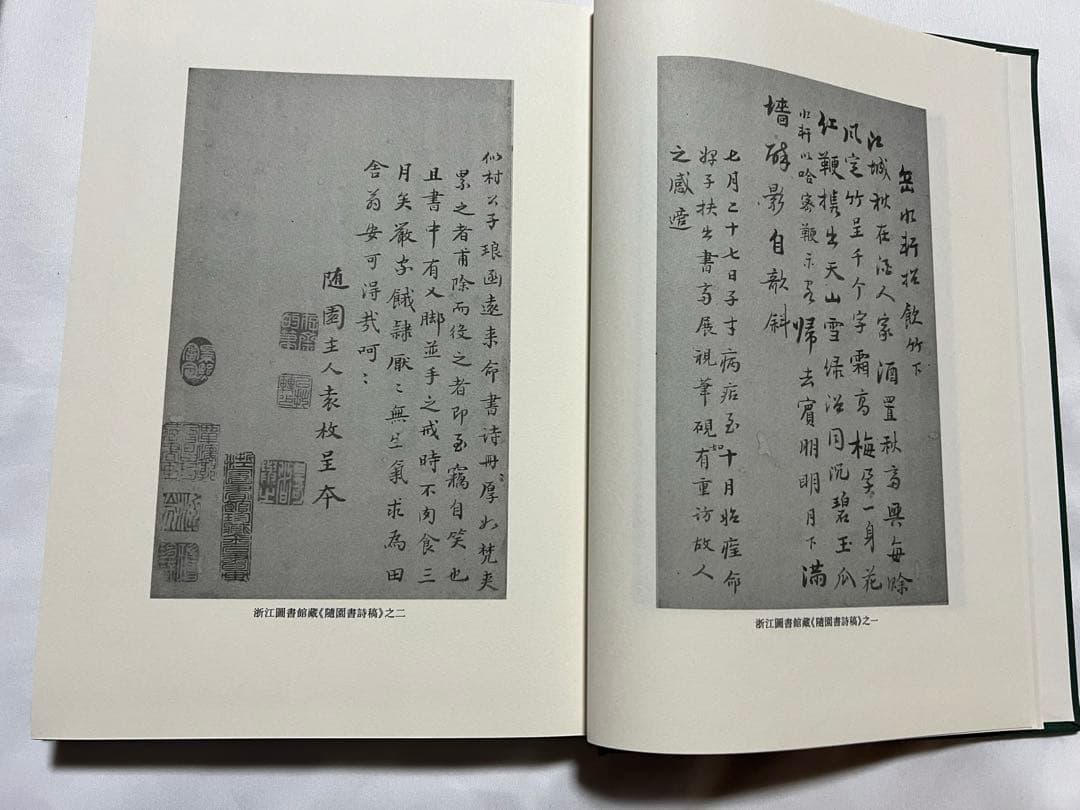 岳水軒招飲竹下
江城秋在酒人家酒置秋高興每賒
風定竹呈千个字霜高梅孕一身花
红鞭携出天山雪绿浴同沉碧玉瓜
水軒以哈密鞭示客歸去賓朋明月下滿
墻醉影自欹斜
七月二十七日子才病痁至十月始痊命
子扶出書高展視筆硯如有重访故人
之感
浙江圖書館藏《隨園書詩稿》之一
似村公子琅函遠来命書诗冊厚如梵夾
累之者甫除而役之者即至竊自笑也
且書中有乂脚並手之戒時不肉食三
月矣嚴家餓隸厭〻無生氣求為田
舍翁安可得哉呵〻
随園主人袁枚呈本
浙江圖書館藏《隨園書詩稿》之二